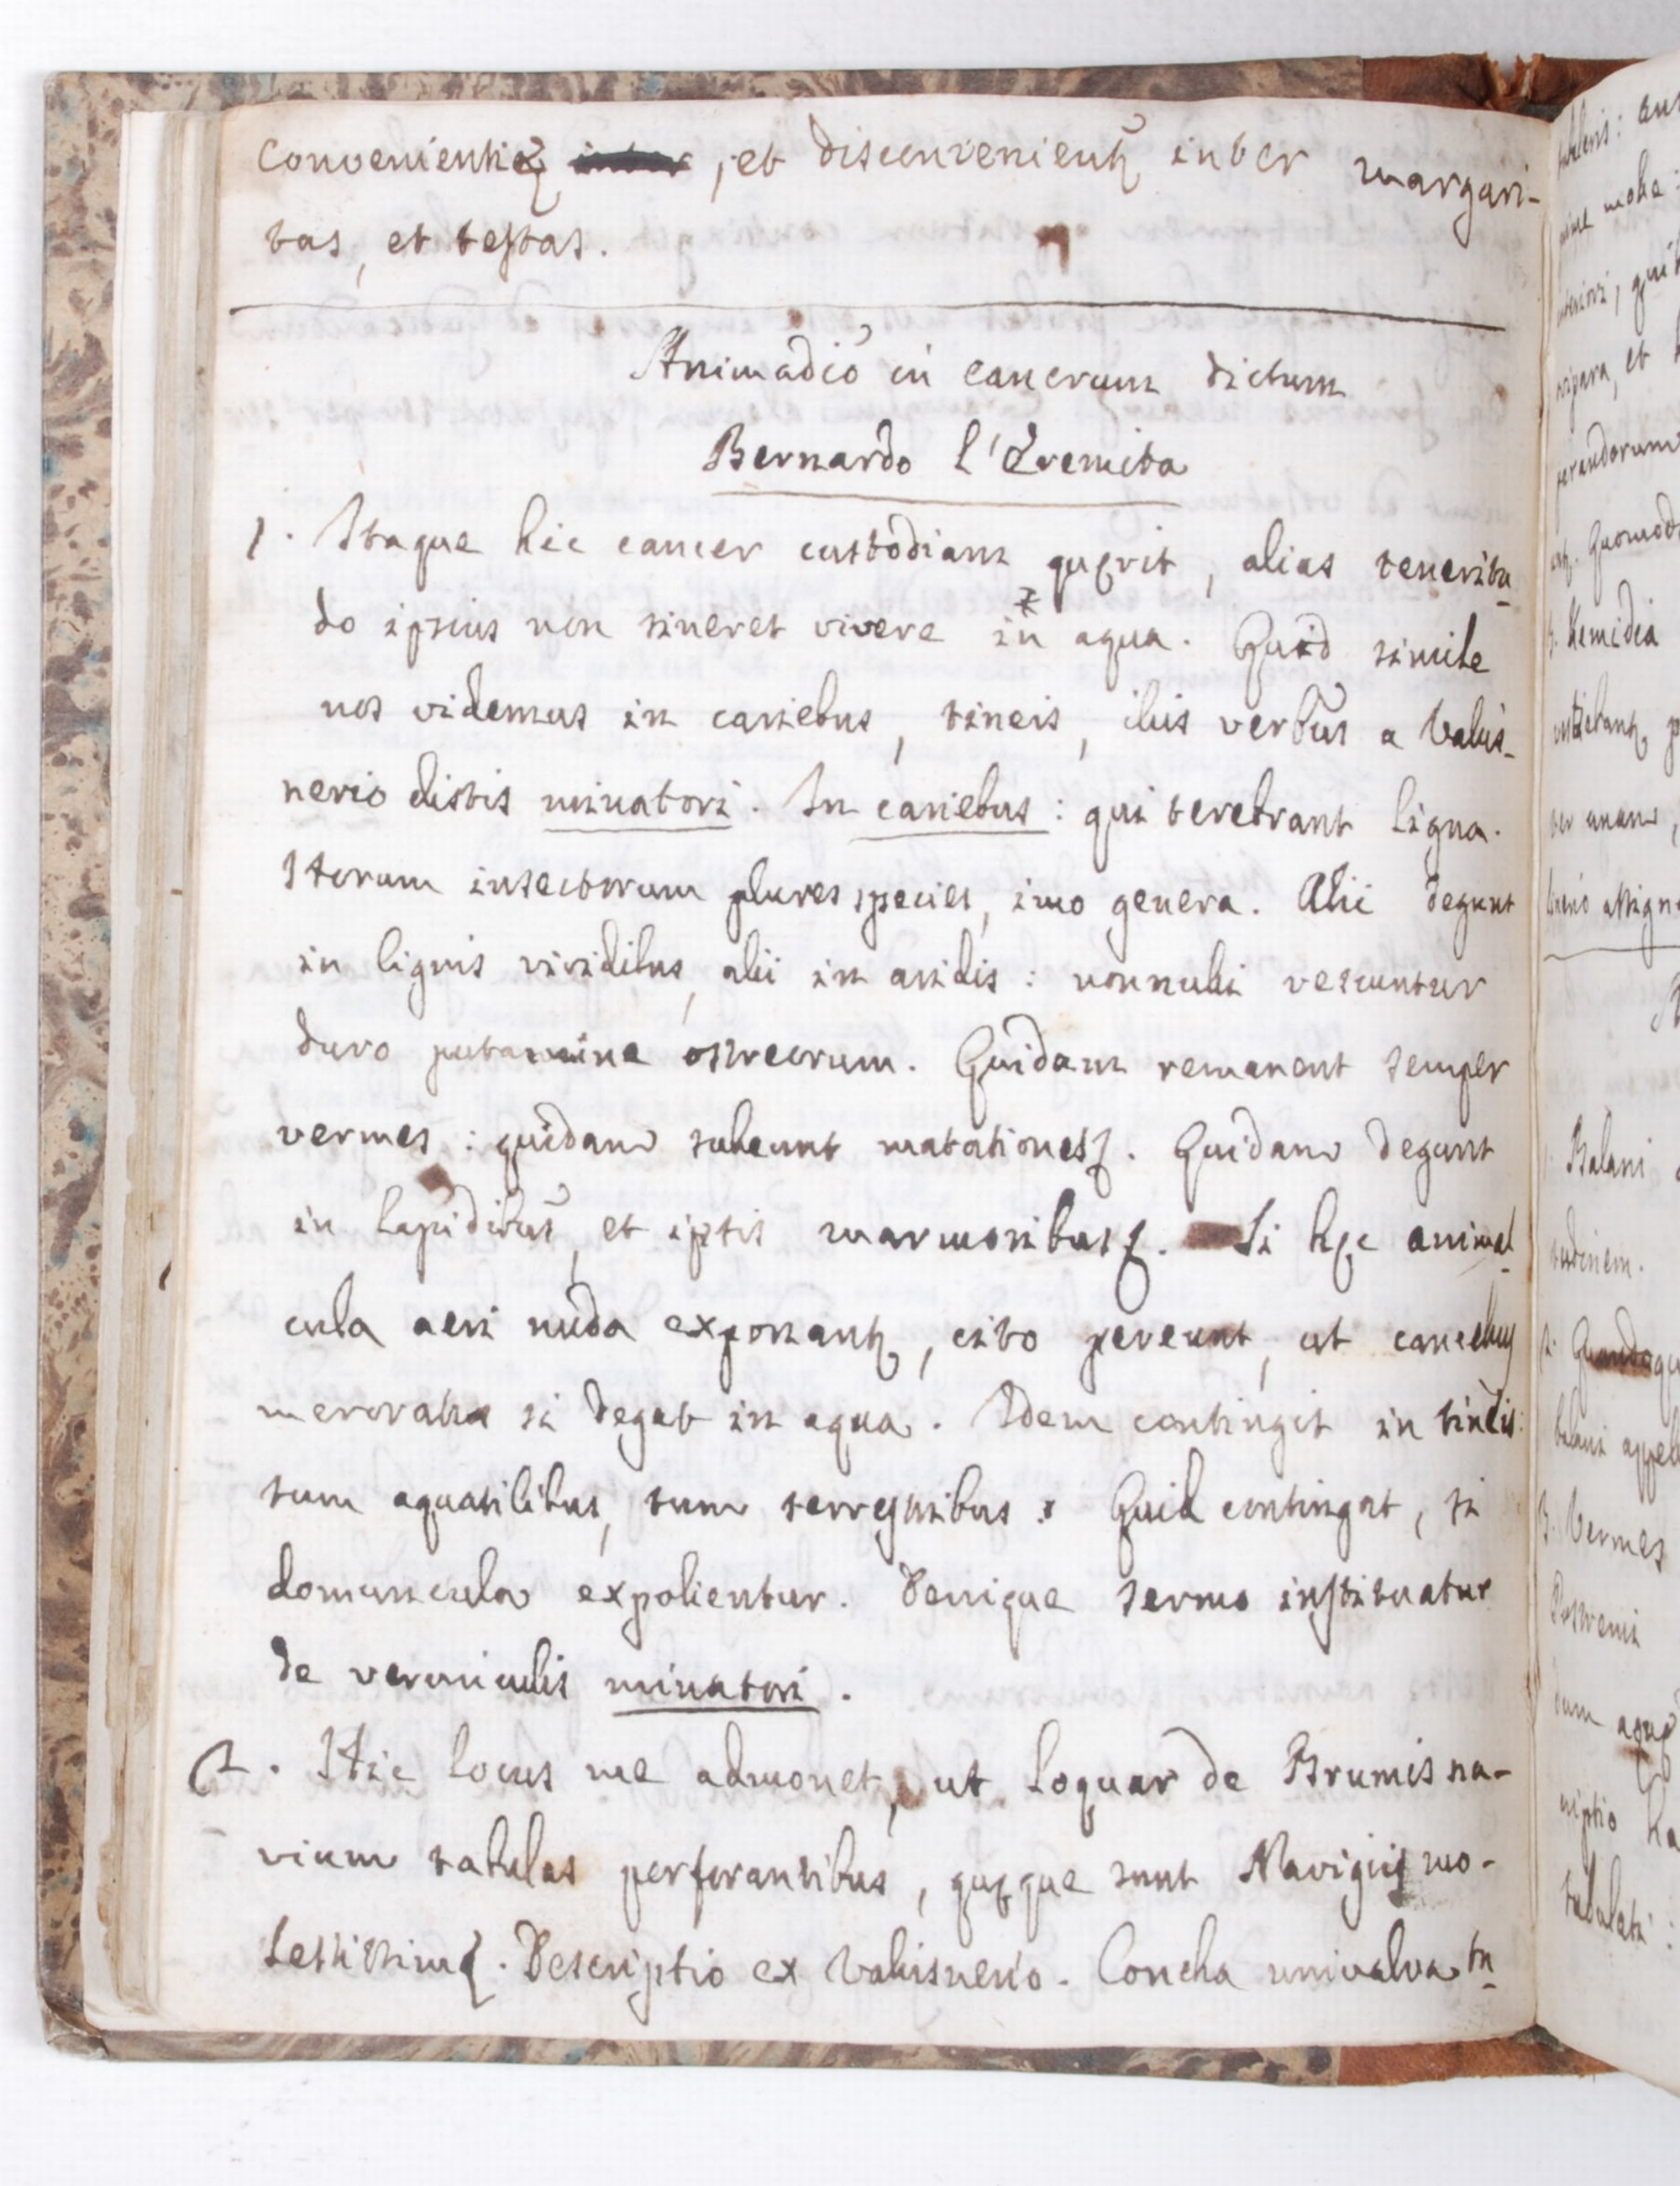 convenientię, et disconvenientę inter margari-
tas, et testas.
Animadio in cancrum dictum
Bernardo l'Eremita
1. Itaque hic cancer custodiam quęrit, alias teneritu-
do ipsius non sineret vivere in aqua. Quid simile
nos videmus in cariebus, tineis, iliis verbus a Valis-
nerio distis minatori. In cariebus: qui terebrant ligna.
Horum insectorum plures species, imo genera. Alii degunt
in lignis viridibus, alii in aridis: nonnulli vescuntur
duro putamine ostreorum. Quidam remanent semper
vermes: quidam subeunt mutationes. Quidam degunt
in lapidibus, et ipsis marmoribus. Si hęc animal-
cula aeri nuda exponantę, cito pereunt, ut
si degat in aqua. Idem contingit in tineis
tum aquatilibus, tum terręstribus: Quid contingat, si
domuncula expolientur. Denique sermo instituatur
de vermiculis minatori.
2. Hic locus me admonet, ut loquar de Brumis na-
vium tabulas perforantibus, quęque sunt Navigiis mo-
lestissimę. Descriptio ex Valisnerio. Concha univalva tu-
Balani
3. Vermes